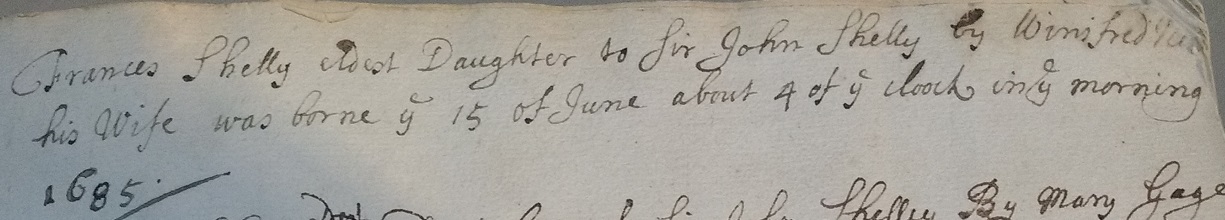 Frances Shelly eldest Daughter to Sir John Shelly by Winifred
his Wife was borne yͤ 15 of June about 4 of yͤ clock in yͤ morning
1685
Shelley By Mary Gage